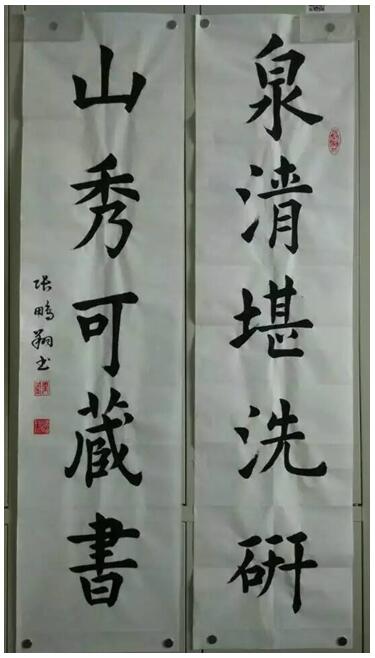 泉清堪洗研
山秀可蔵書
张鹏翔书